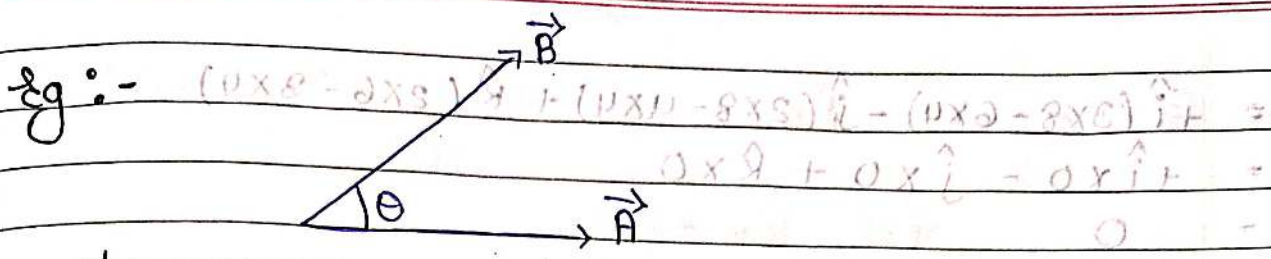 Eg :-
B⃗
θ
A⃗